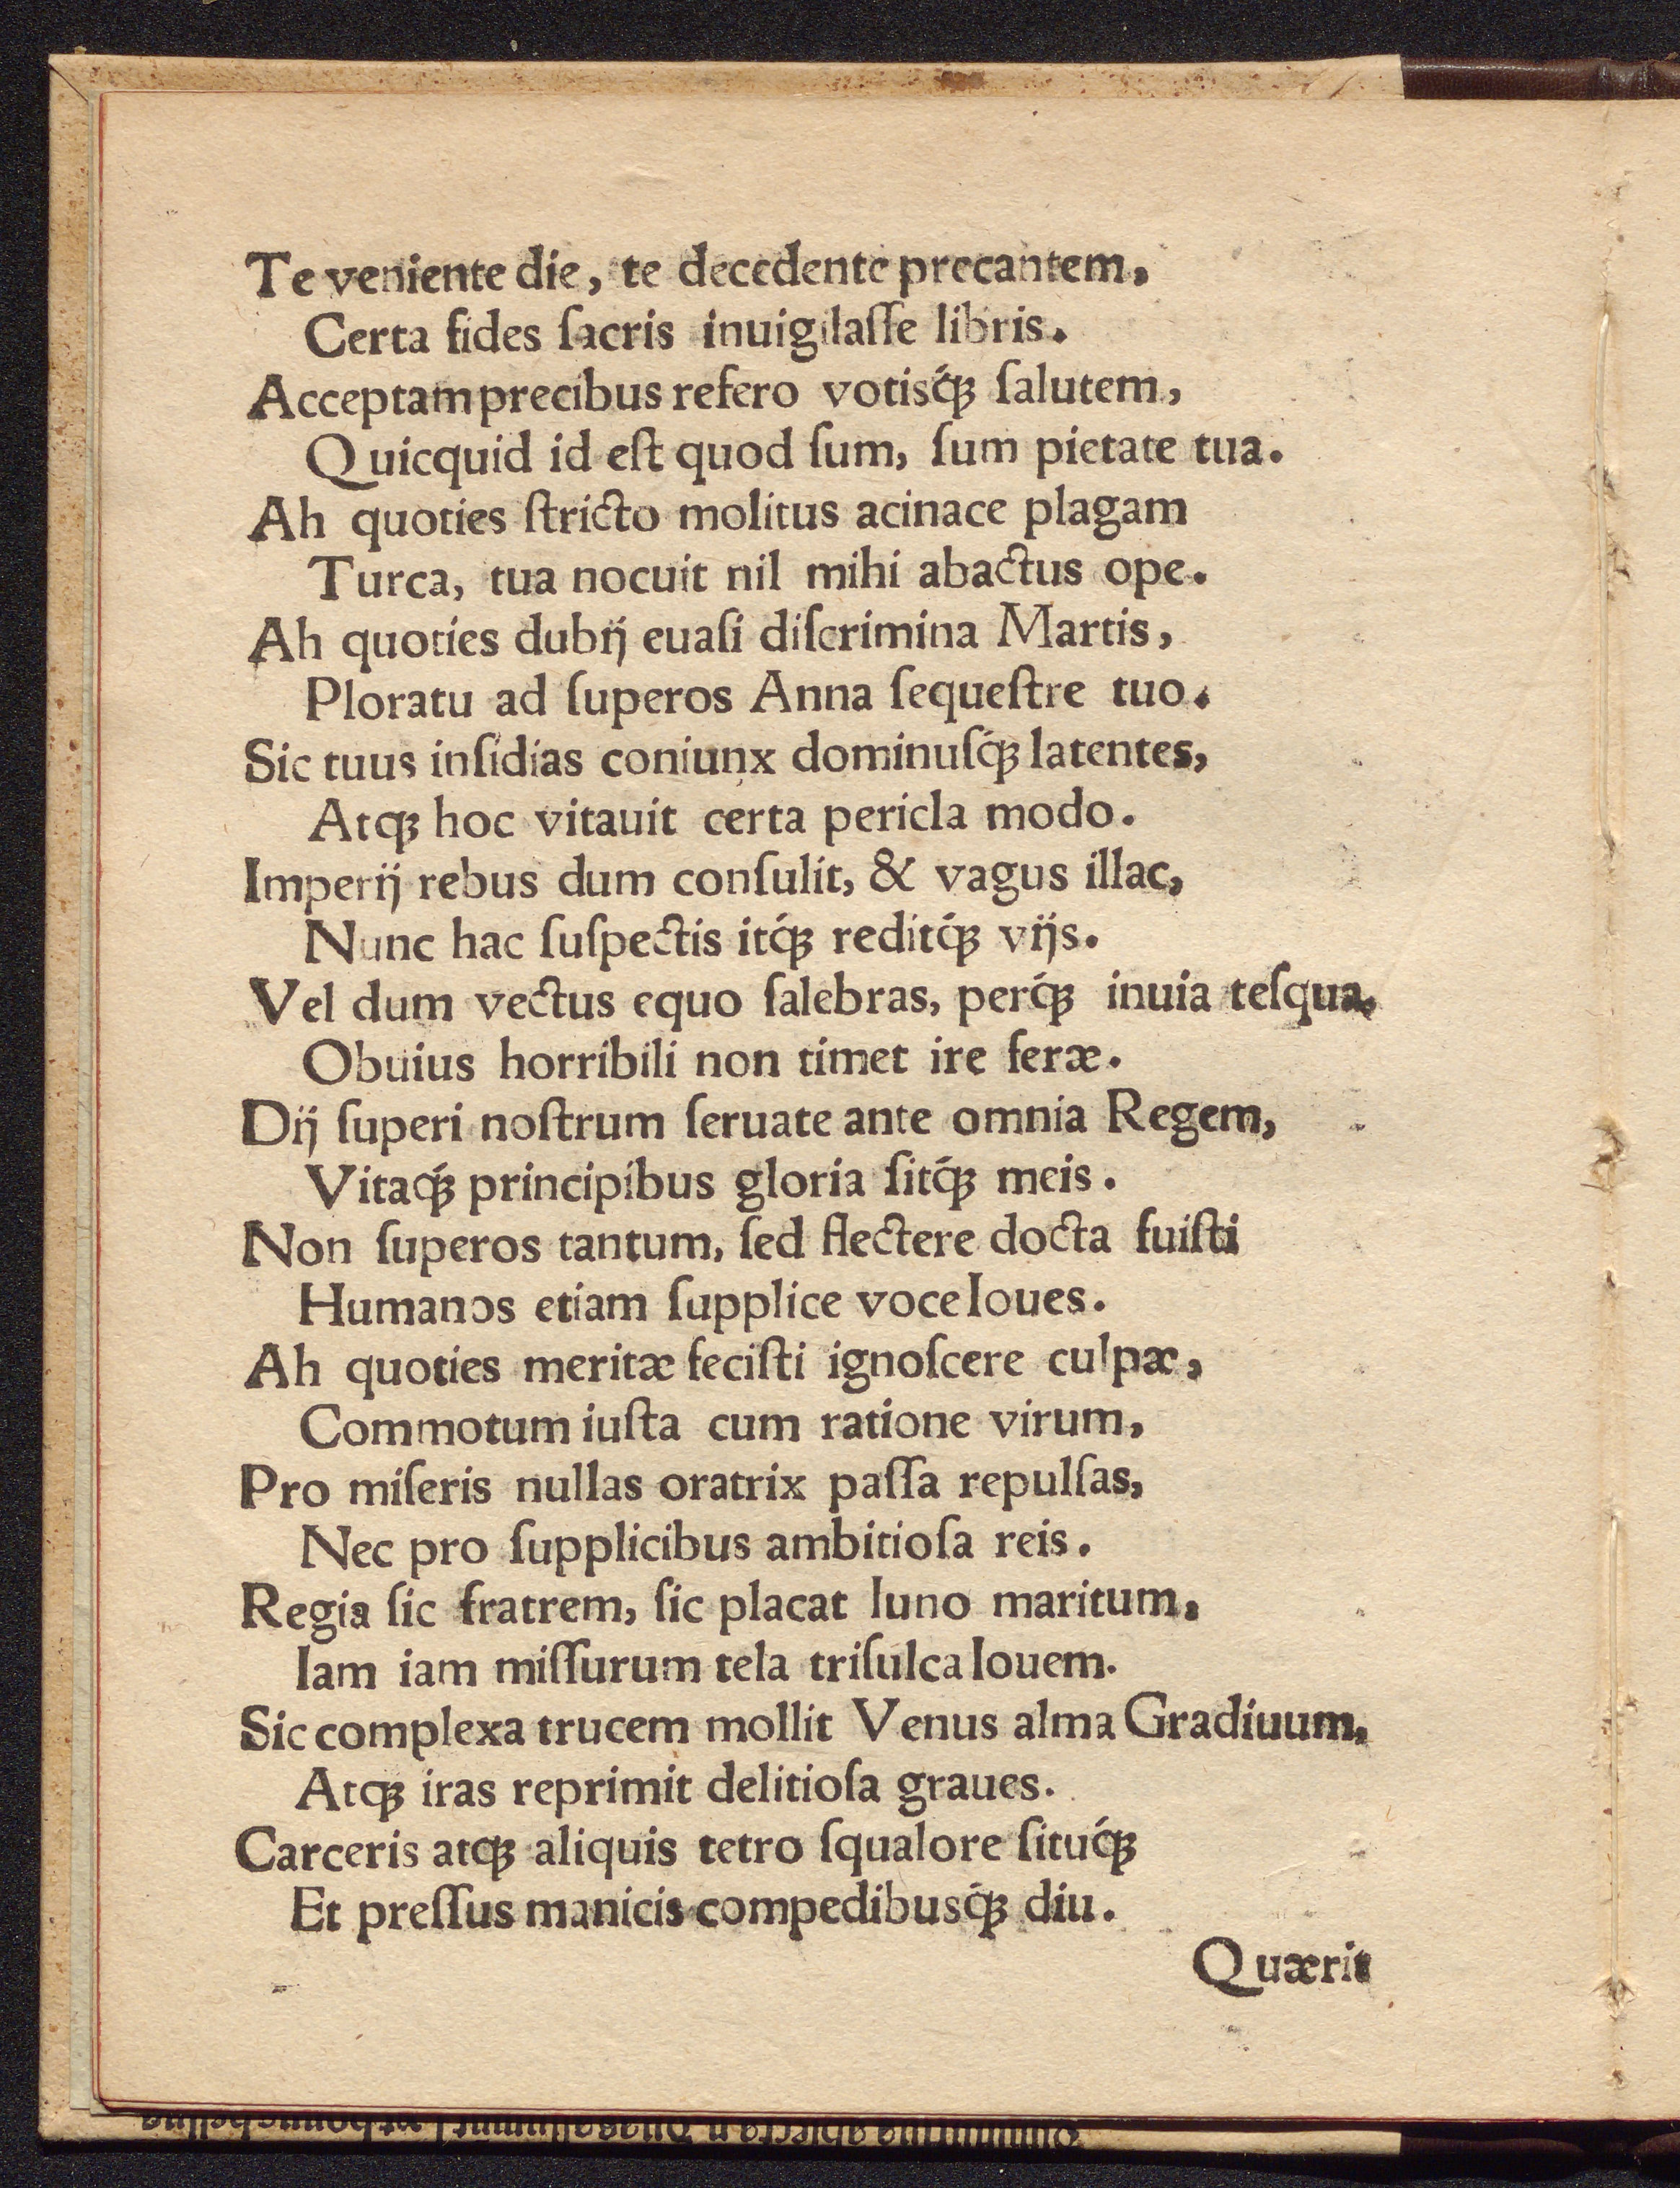 Te veniente die, te decedente precantem,
Certa fides ſacris inuigilaſſe libris.
Acceptam precibus refero votisq́ꝫ ſalutem,
Quicquid id eſt quod ſum, ſum pietate tua.
Ah quoties ſtricto molitus acinace plagam
Turca, tua nocuit nil mihi abactus ope.
Ah quoties dubij euaſi diſcrimina Martis,
Ploratu ad ſuperos Anna ſequeſtre tuo.
Sic tuus inſidias coniunx dominuſq́ꝫ latentes,
Atqꝫ hoc vitauit certa pericla modo.
Imperij rebus dum conſulit, & vagus illac,
Nunc hac ſuſpectis itq́ꝫ reditq́ꝫ vijs.
Vel dum vectus equo ſalebras, perq́ꝫ inuia teſqua,
Obuius horribili non timet ire feræ.
Dij ſuperi noſtrum ſeruate ante omnia Regem,
Vitaq́ꝫ principibus gloria ſitq́ꝫ meis.
Non ſuperos tantum, ſed flectere docta fuiſti
Humanos etiam ſupplice voce Ioues.
Ah quoties meritæ feciſti ignoſcere culpæ,
Commotum iuſta cum ratione virum,
Pro miſeris nullas oratrix paſſa repulſas,
Nec pro ſupplicibus ambitioſa reis.
Regia ſic fratrem, ſic placat Iuno maritum,
Iam iam miſſurum tela triſulca Iouem.
Sic complexa trucem mollit Venus alma Gradiuum,
Atqꝫ iras reprimit delitioſa graues.
Carceris atqꝫ aliquis tetro ſqualore ſituq́ꝫ
Et preſſus manicis compedibusq́ꝫ diu.
Quærit